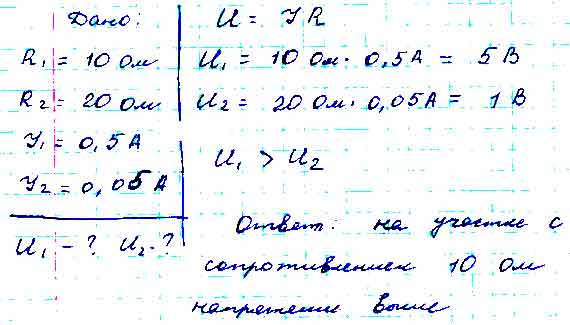 Дано:
R₁ = 10 Ом
R₂ = 20 Ом
I₁ = 0,5 А
I₂ = 0,05 А
U₁ - ? U₂ - ?
U = IR
U₁ = 10 Ом · 0,5 А = 5 В
U₂ = 20 Ом · 0,05 А = 1 В
U₁ > U₂
Ответ: на участке с
сопротивлением 10 Ом
напряжение выше